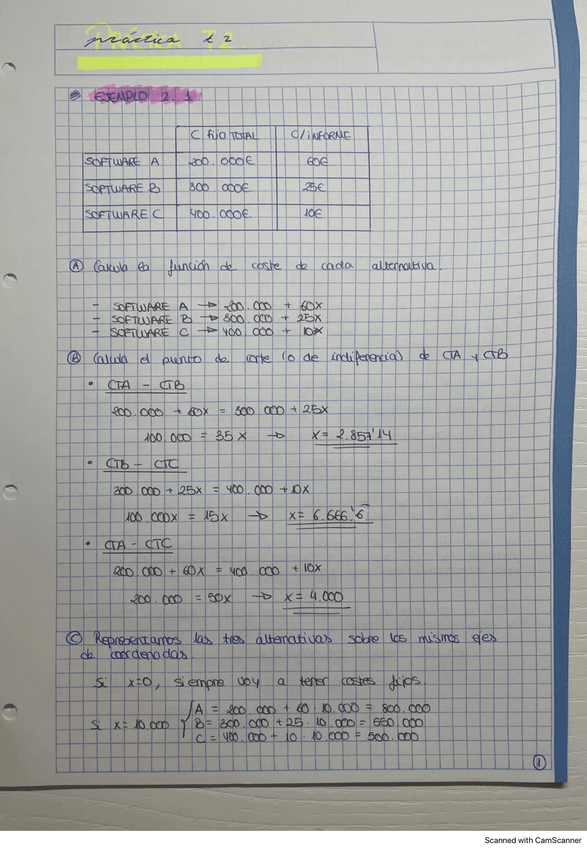 práctica 1.2
PRÁCTICA 1.2.
EJEMPLO 2.1
C FIJO TOTAL C/INFORME
SOFTWARE A 200.000€ 60€
SOFTWARE B 300 000€ 25€
SOFTWARE C 400.000€ 10€
A Calcula la función de coste de cada alternativa.
- SOFTWARE A → 200.000 + 60x
- SOFTWARE B → 300.000 + 25x
- SOFTWARE C → 400.000 + 10x
B Calcula el punto de corte (o de indiferencia) de CTA y CTB
• CTA - CTB
200.000 + 60x = 300 000 + 25x
100.000 = 35x → x = 2.857'14
• CTB - CTC
300.000 + 25x = 400.000 + 10x
100.000x = 15x → x = 6.666'6
• CTA - CTC
200.000 + 60x = 400.000 + 10x
200.000 = 50x → x = 4.000
C Representamos las tres alternativas sobre los mismos ejes
de coordenadas.
Si x=0, siempre voy a tener costes fijos.
A = 200.000 + 60·10.000 = 800.000
Si x = 10.000 { B = 300.000 + 25·10.000 = 550.000
C = 400.000 + 10·10.000 = 500.000
1
Scanned with CamScanner